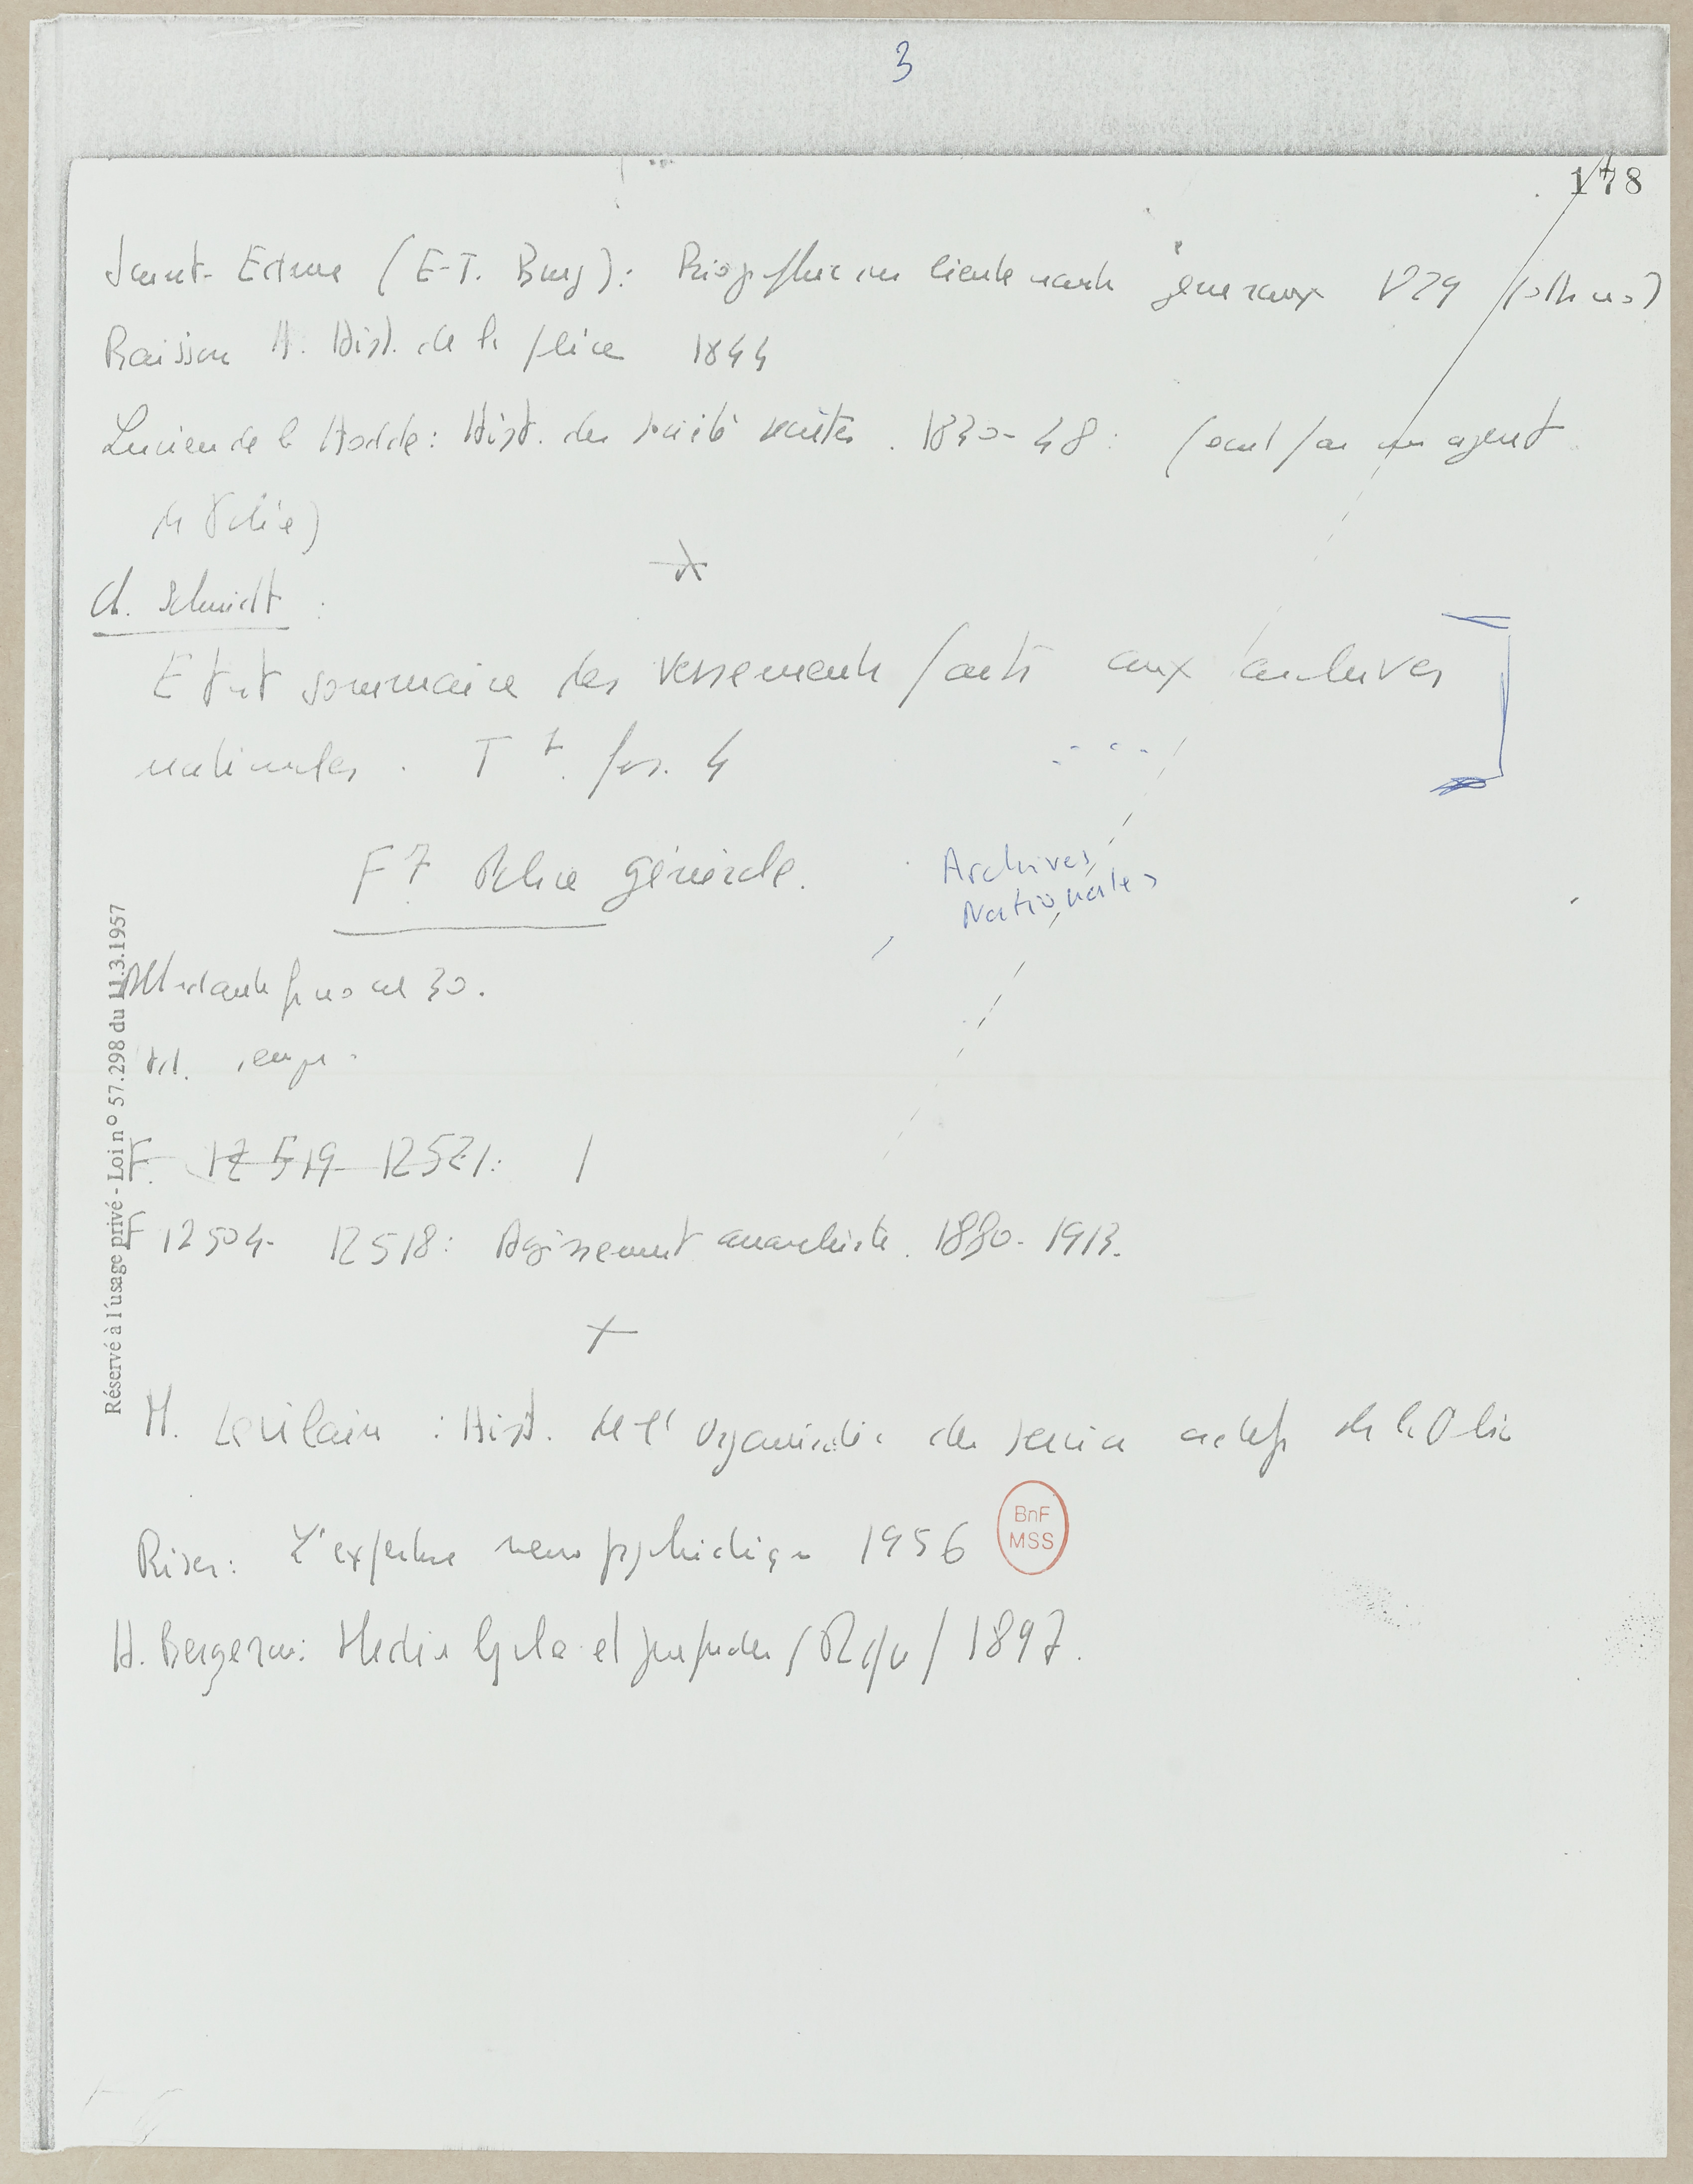 3
178
Saint-Edme (E-T. Bourg): Biographie des lieutenants généraux 1829
Raisson H. Hist. de la police 1844
Lucien de la Hodde: Hist. des sociétés secrètes. 1830-48: (écrit par un agent
de Police)
Ch. Schmidt:
Etat sommaire des versements faits aux archives
nationales. T fas. 4
F7 Police générale.
Archives
Nationales
F 12519-12521:
F 12504-12518: Agissements anarchistes. 1880-1913.
Réservé à l'usage privé - Loi nº 57.298 du 11.3.1957
H. : Hist. de l'organisation des services actifs de la Police
Riser: L'expertise neuropsychiatrique 1956
BnF
MSS
H. Bergeron: Médecins légistes et 1897.